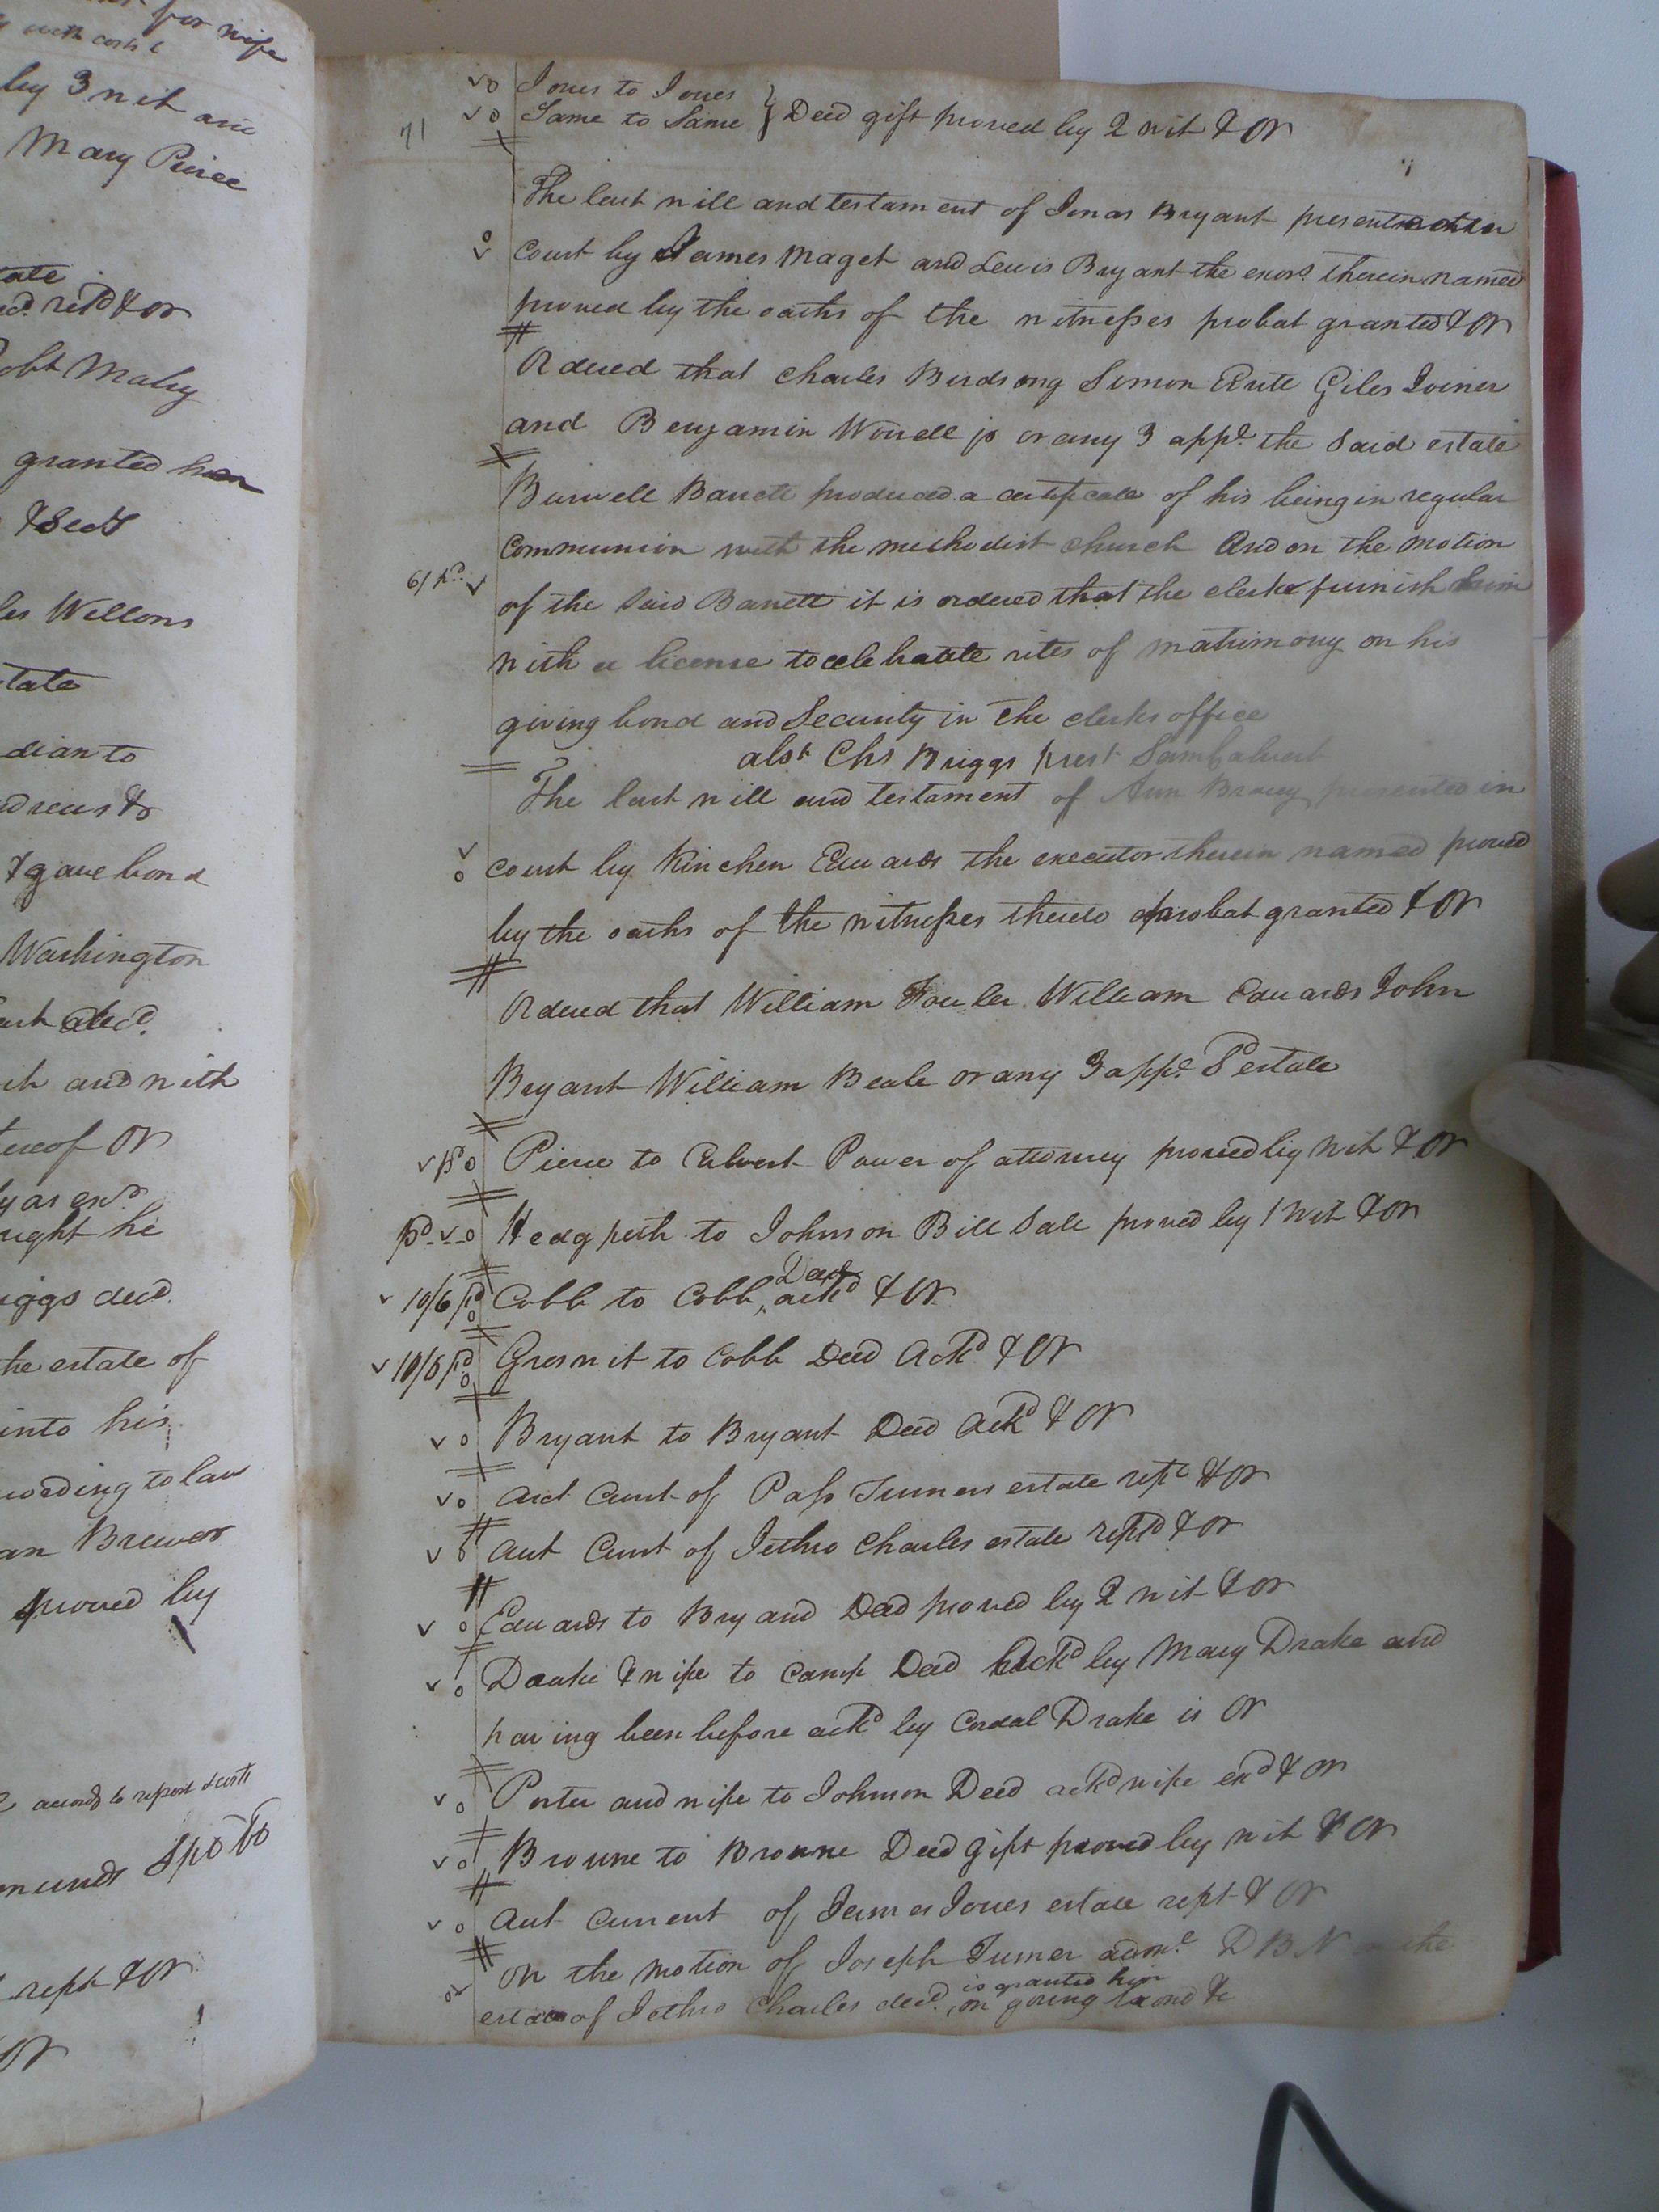 for wife
with costs &
by 3 wit and
Mary Peirce
tate
retd & OR
obt Mabry
granted her
& Secy
les Wellons
tate
dian to
drews &
& gave bond
Washington
decd.
ith and with
ereof OR
y as exor
ught he
iggs decd.
the estate of
into his
cording to law
an Brewer
proved by
accordg to report & costs
rept & OR
OR
71
v o Jones to Jones
v o Same to Same } Deed gift proved by 2 wit & OR
The last will and testament of Jonas Bryant presented in
o v court by James Maget and Lewis Bryant the exors. therein named
proved by the oaths of the witnesses probat granted & OR
Ordered that Charles Birdsong Simon Giles Joiner
and Benjamin Worrell jr or any 3 appe. the said estate
Burwell Barrett produced a certificate of his being in regular
Communion with the methodist church And on the motion
6/ pd. v of the said Barrett it is ordered that the clerke furnish him
with a license to celebrate rites of matrimony on his
giving bond and Security in the clerks office
abst Chs Briggs prest Saml Calvert
The last will and testament of Ann presented in
v o court by Kinchen Edwards the executor therein named proved
by the oaths of the witnesses thereto probat granted & OR
Ordered that William Fowler William Edwards John
Bryant William Beale or any 3 appe. Sd estate
v pd o Pierce to Calvert Power of attorney proved by wit & OR
pd. v o Hedgpeth to Johnson Bill Sale proved by 1 wit & OR
Deed
v 10/6 pd o Cobb to Cobb, ackd & OR
v 10/6 pd o Greswit to Cobb Deed Ackd & OR
v o Bryant to Bryant Deed Ackd & OR
v o Act Curt of Pass Turners estate rept & OR
v o Act Curt of Jethro Charles estate reptd & OR
v o Edwards to Bryand Deed proved by 2 wit & OR
v o Drake & wife to Camp Deed Ackd by Mary Drake and
having been before ackd by Cordal Drake is OR
v o Porter and wife to Johnson Deed ackd wife exd & OR
v o Browne to Browne Deed Gift proved by wit & OR
v o Act Current of James Jones estate rept & OR
On the motion of Joseph Turner adme. DBN the
is granted him
estate of Jethro Charles decd. on giving bond &c